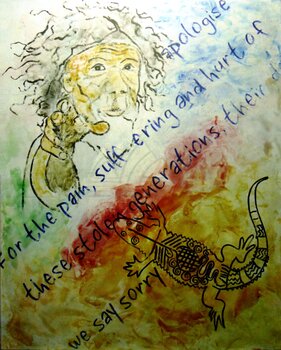 apologise
For the pain, suffering and hurt of
these stolen generations, their d
we say sorry